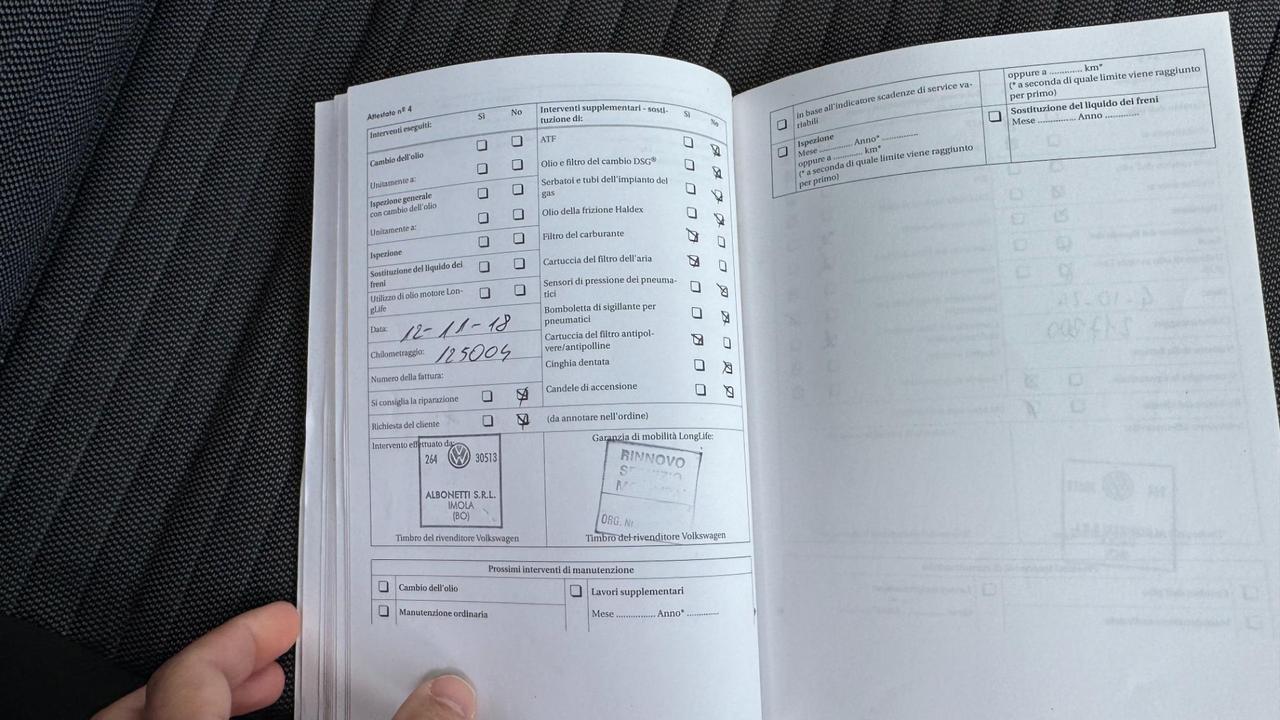 Attestato nº 4
Interventi eseguiti: Sì No
Cambio dell'olio
Unitamente a:
Ispezione generale
con cambio dell'olio
Unitamente a:
Ispezione
Sostituzione del liquido dei
freni
Utilizzo di olio motore Lon-
gLife
Data: 12-11-18
Chilometraggio: 125004
Numero della fattura:
Si consiglia la riparazione
Richiesta del cliente
(da annotare nell'ordine)
Interventi supplementari - sosti-
tuzione di: Sì No
ATF
Olio e filtro del cambio DSG®
Serbatoi e tubi dell'impianto del
gas
Olio della frizione Haldex
Filtro del carburante
Cartuccia del filtro dell'aria
Sensori di pressione dei pneuma-
tici
Bomboletta di sigillante per
pneumatici
Cartuccia del filtro antipol-
vere/antipolline
Cinghia dentata
Candele di accensione
Intervento effettuato da:
264 30513
ALBONETTI S.R.L.
IMOLA
(BO)
Timbro del rivenditore Volkswagen
Garanzia di mobilità LongLife:
RINNOVO
ORG. Nr
Timbro del rivenditore Volkswagen
Prossimi interventi di manutenzione
Cambio dell'olio
Manutenzione ordinaria
Lavori supplementari
Mese ................ Anno* ..............
in base all'indicatore scadenze di service va-
riabili
Ispezione
Mese .............. Anno* ...............
oppure a ............. km*
(* a seconda di quale limite viene raggiunto
per primo)
oppure a ............. km*
(* a seconda di quale limite viene raggiunto
per primo)
Sostituzione del liquido dei freni
Mese ................ Anno .............